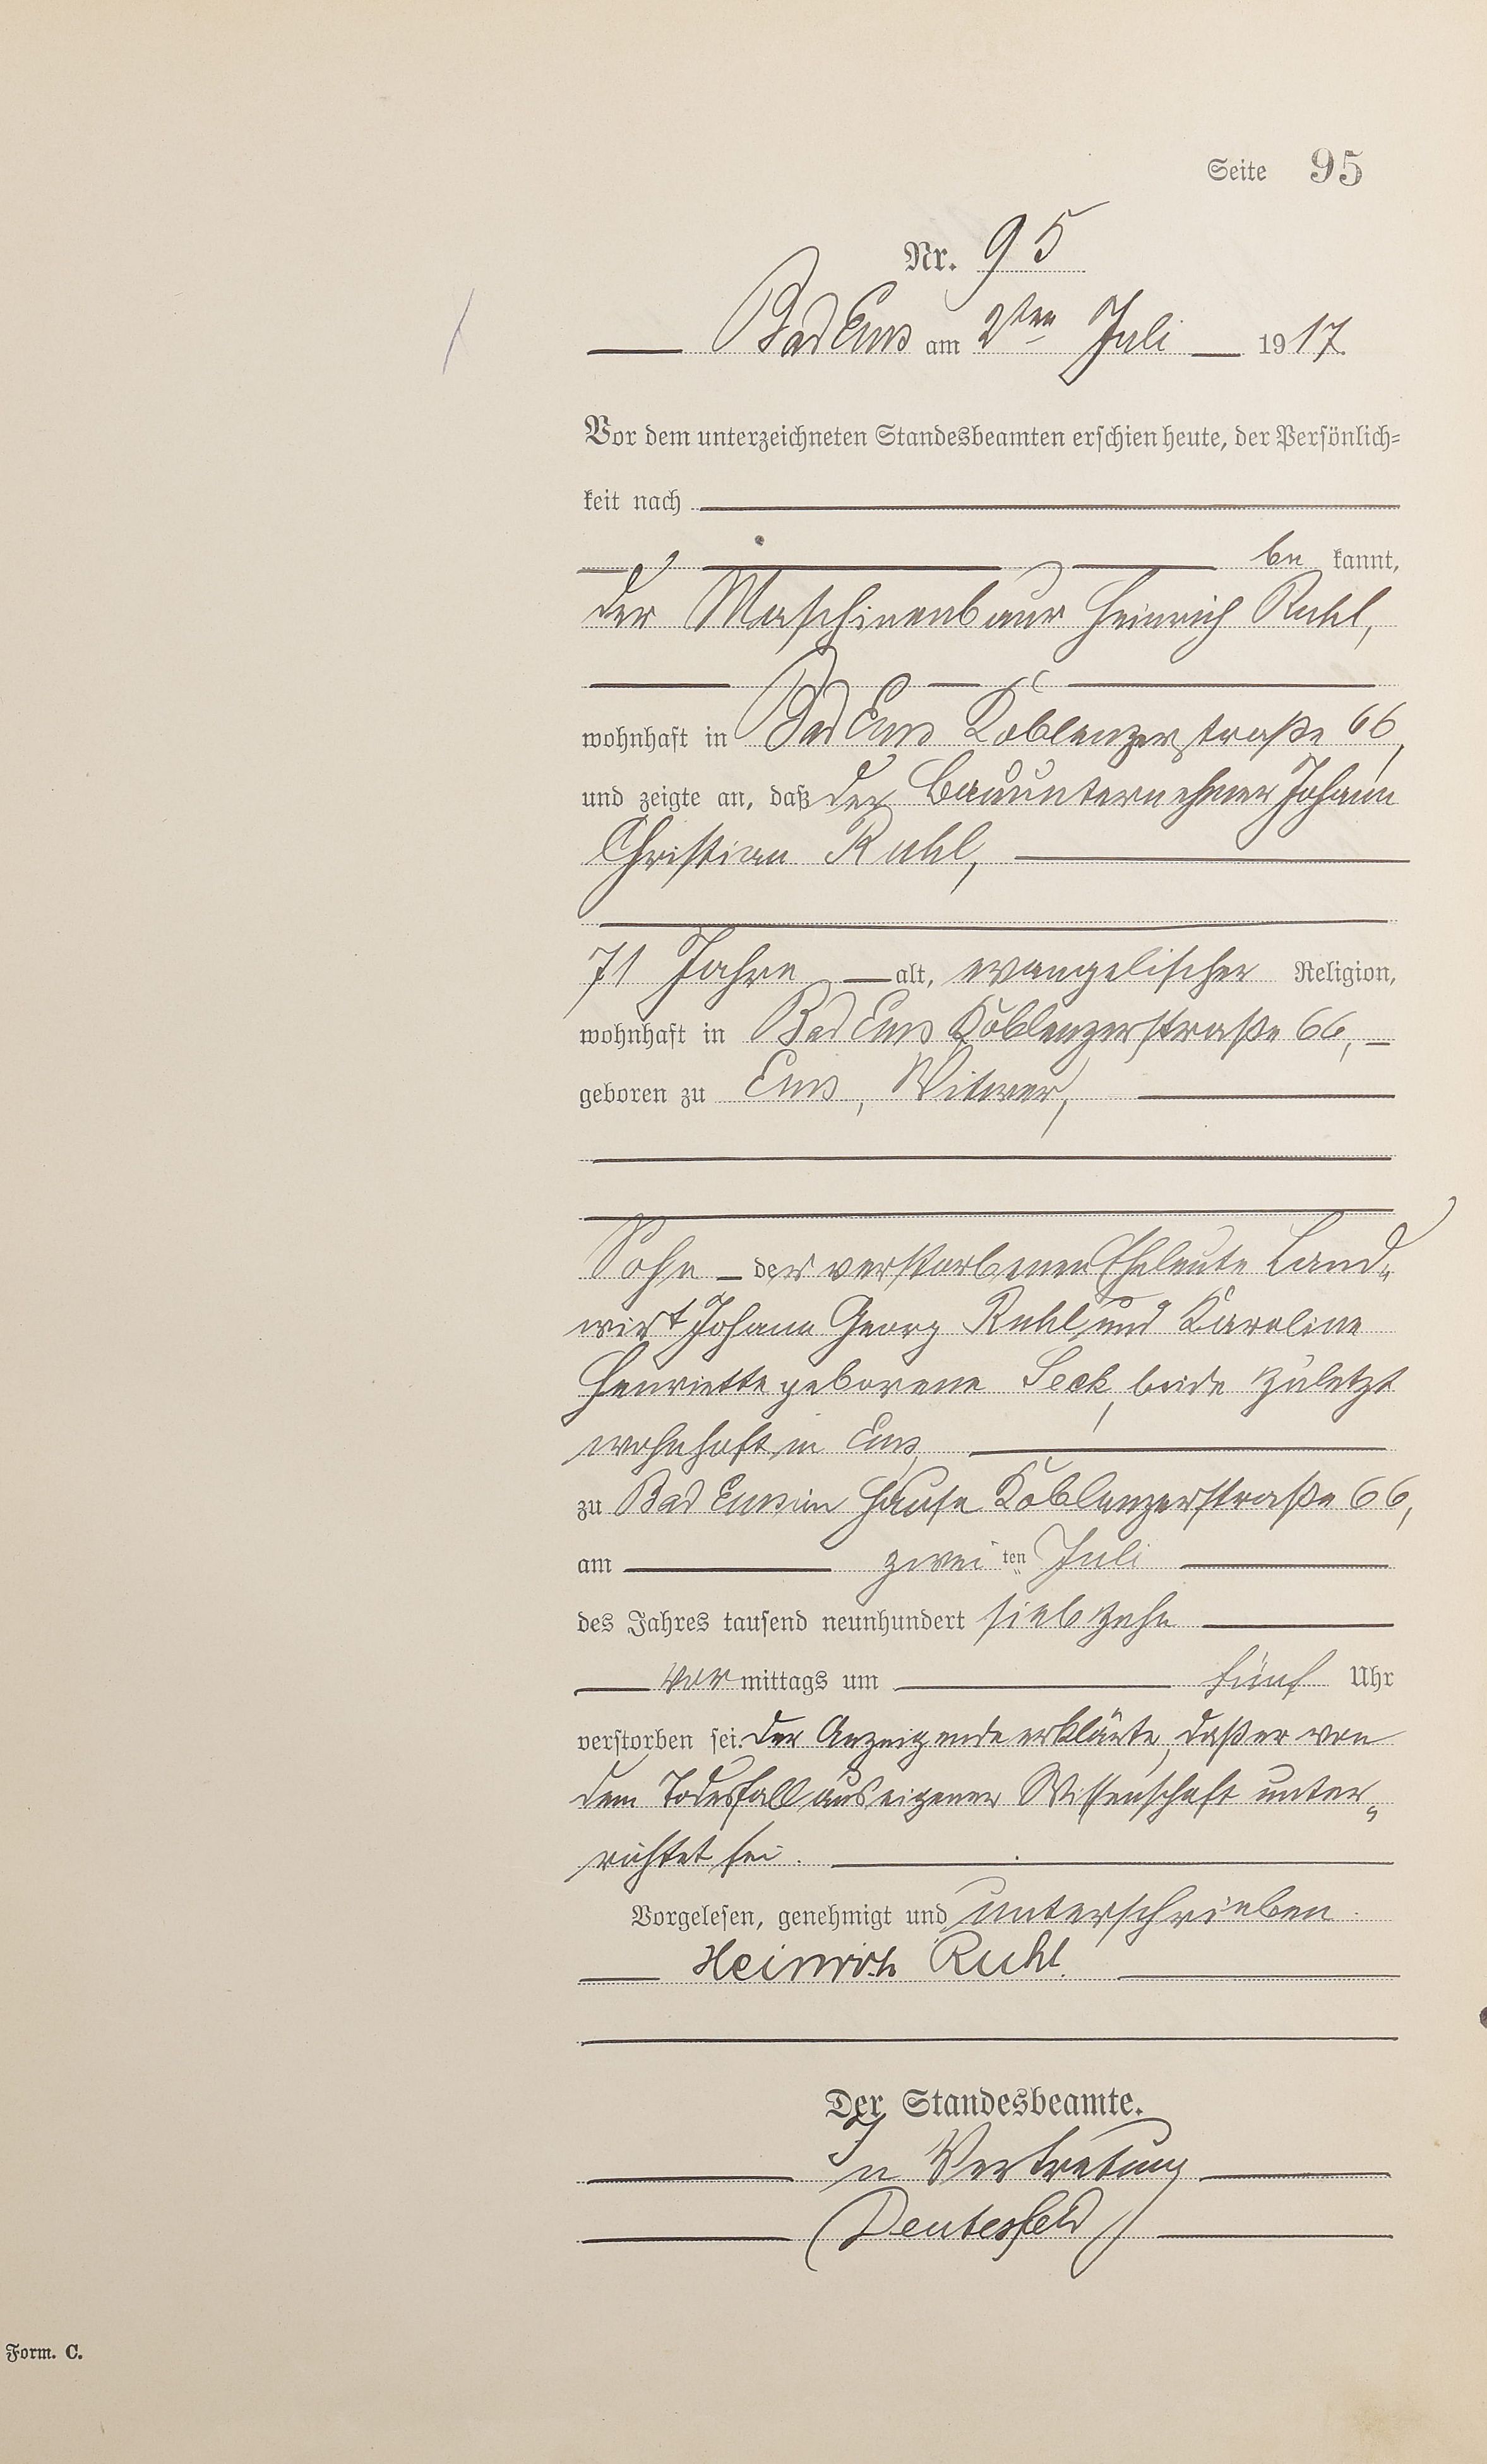 Seite 95
Nr. 95
Bad Ems am 2ten Juli 1917.
Vor dem unterzeichneten Standesbeamten erschien heute, der Persönlich-
keit nach
be kannt,
der Maschinenbauer Heinrich Ruhl,
wohnhaft in Bad Ems Koblenzerstraße 66,
und zeigte an, daß der Bauunternehmer Johann
Christian Ruhl,
71 Jahre alt, evangelischer Religion,
wohnhaft in Bad Ems Koblenzerstraße 66,
geboren zu Ems, Witwer,
Sohn der verstorbenen Eheleute Land-
wirt Johann Georg Ruhl und Karoline
Henriette geborene Seck, beide zuletzt
wohnhaft in Ems,
zu Bad Ems im Hause Koblenzerstraße 66,
am zwei ten Juli
des Jahres tausend neunhundert siebzehn
vor mittags um fünf Uhr
verstorben sei. Der Anzeigende erklärte, daß er von
dem Todesfall aus eigener Wissenschaft unter-
richtet sei.
Vorgelesen, genehmigt und unterschrieben.
Heinrich Ruhl.
Der Standesbeamte.
In Vertretung
Form. C.